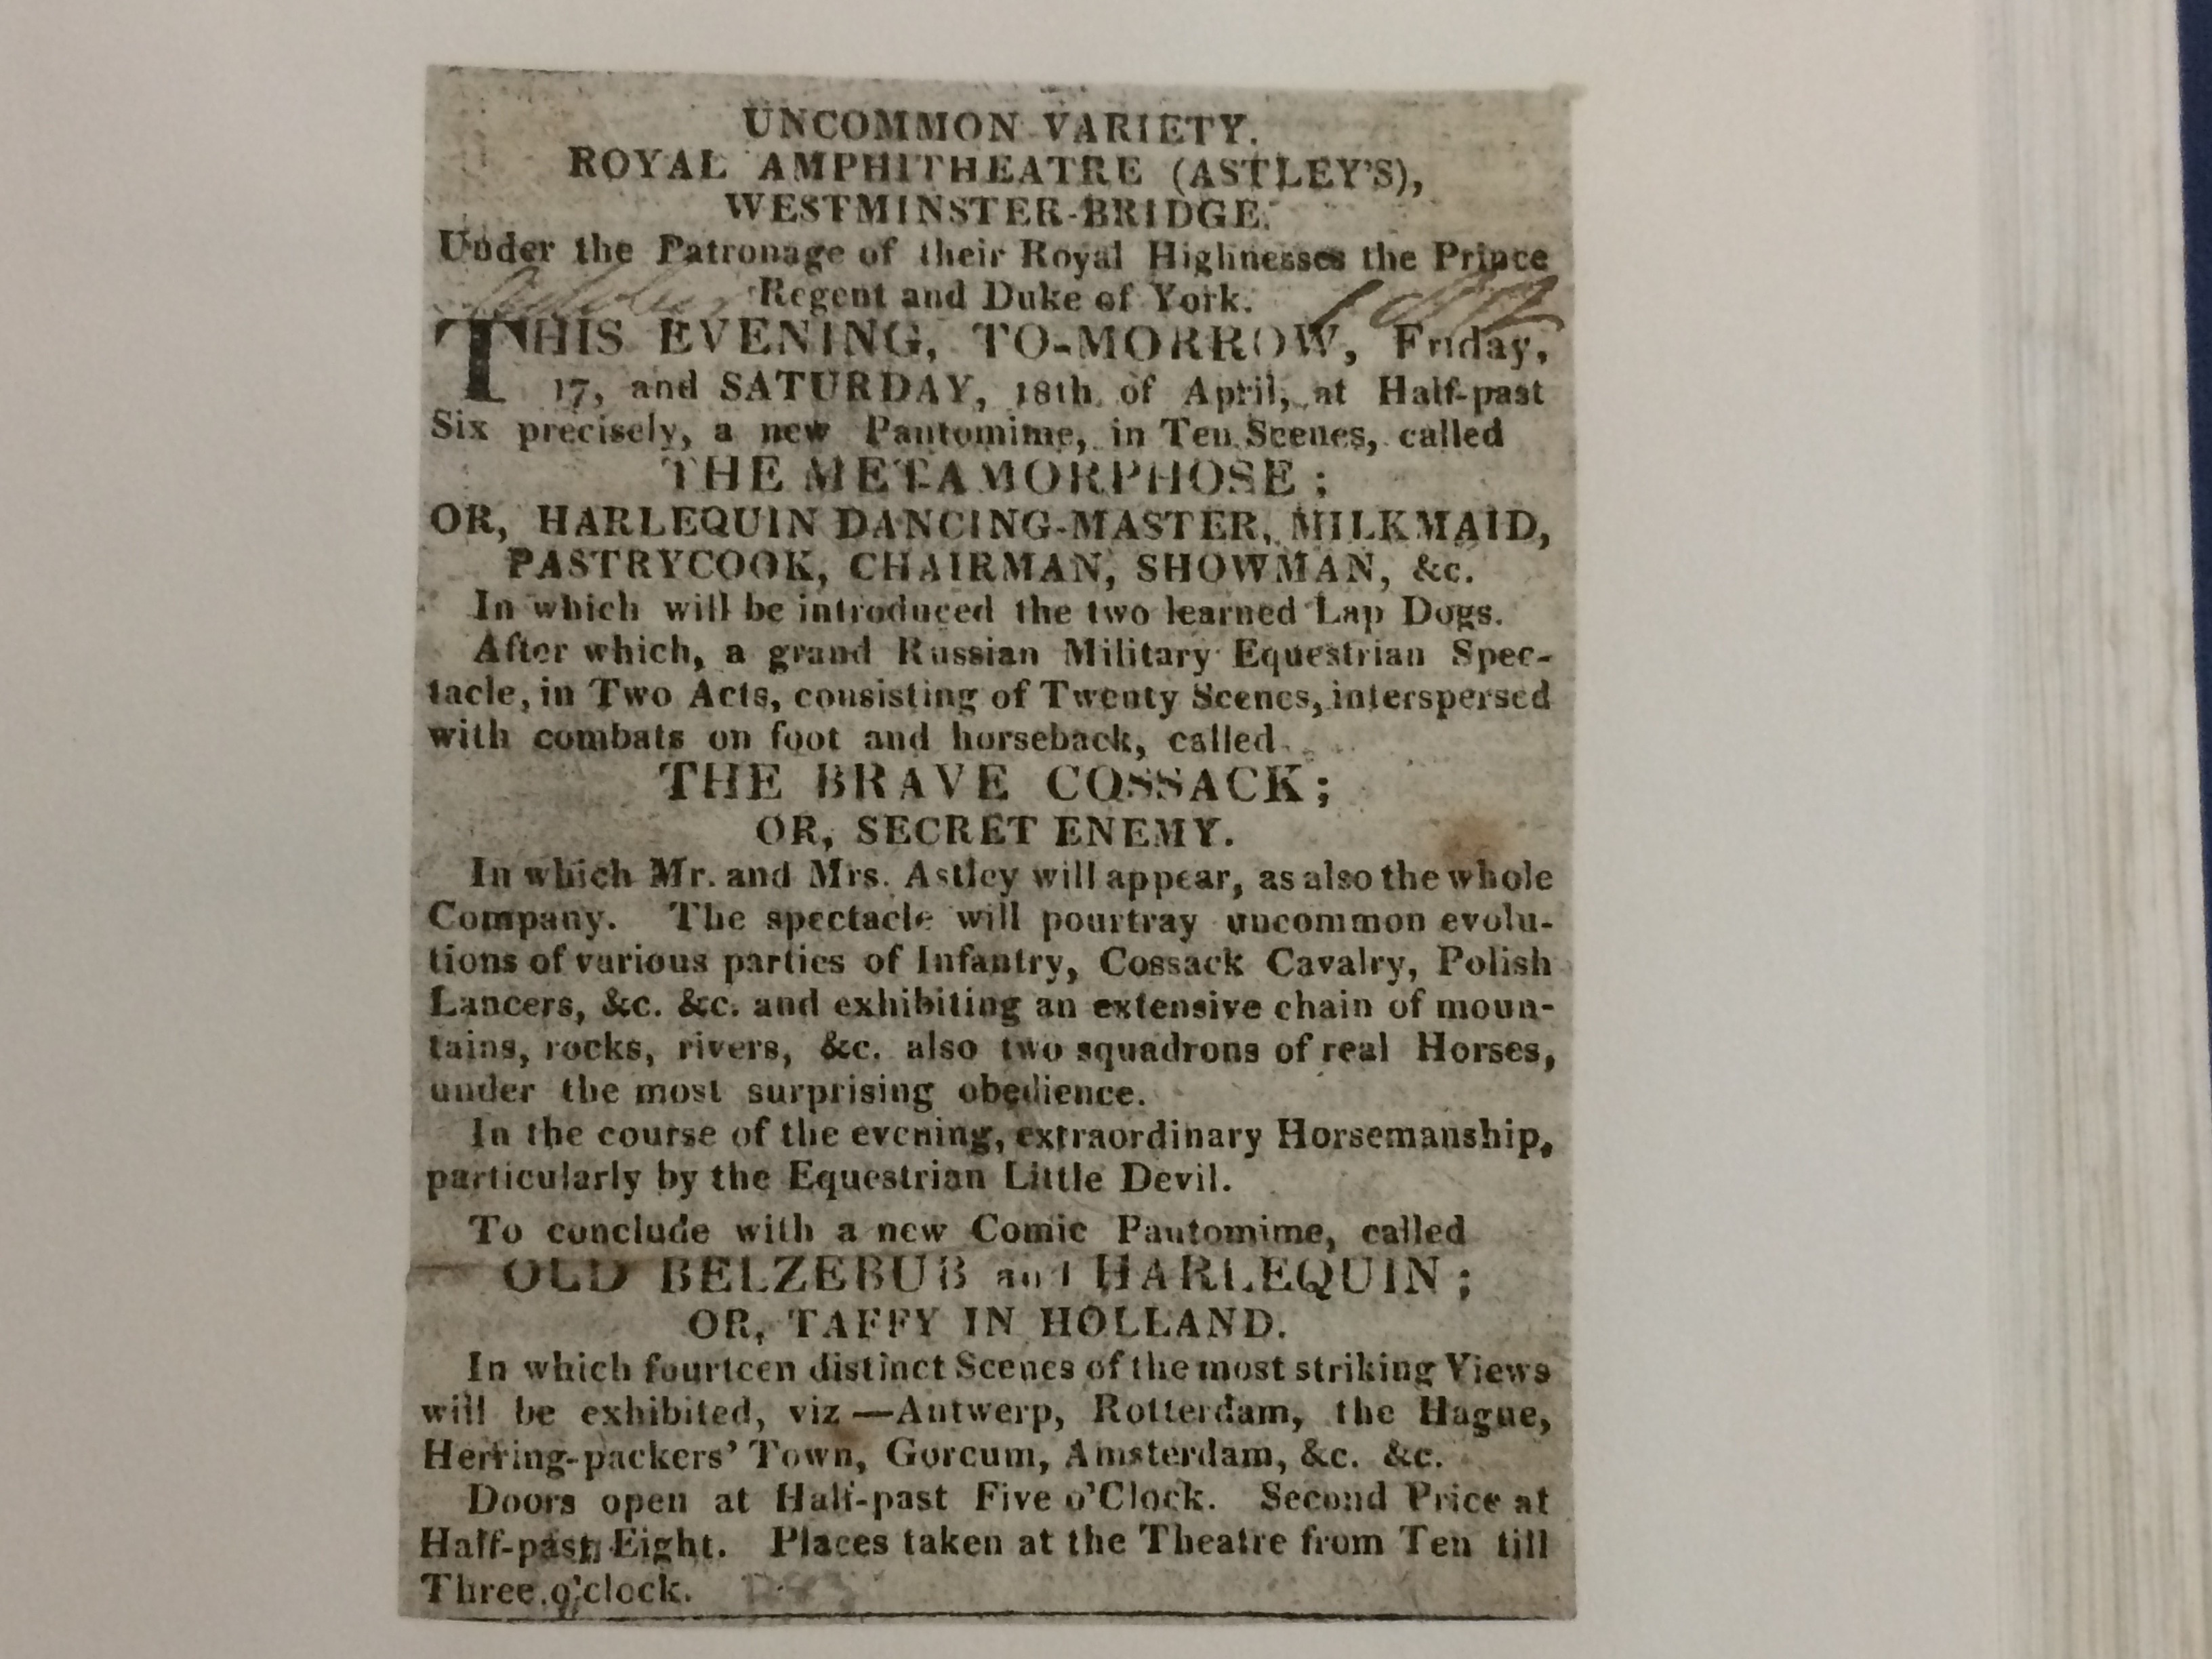 UNCOMMON VARIETY.
ROYAL AMPHITHEATRE (ASTLEY'S),
WESTMINSTER-BRIDGE.
Under the Patronage of their Royal Highnesses the Prince
Regent and Duke of York.
1812
THIS EVENING, TO-MORROW, Friday,
17, and SATURDAY, 18th of April, at Half-past
Six precisely, a new Pantomime, in Ten Scenes, called
THE METAMORPHOSE;
OR, HARLEQUIN DANCING-MASTER, MILKMAID,
PASTRYCOOK, CHAIRMAN, SHOWMAN, &c.
In which will be introduced the two learned Lap Dogs.
After which, a grand Russian Military Equestrian Spec-
tacle, in Two Acts, consisting of Twenty Scenes, interspersed
with combats on foot and horseback, called
THE BRAVE COSSACK;
OR, SECRET ENEMY.
In which Mr. and Mrs. Astley will appear, as also the whole
Company. The spectacle will pourtray uncommon evolu-
tions of various parties of Infantry, Cossack Cavalry, Polish
Lancers, &c. &c. and exhibiting an extensive chain of moun-
tains, rocks, rivers, &c. also two squadrons of real Horses,
under the most surprising obedience.
In the course of the evening, extraordinary Horsemanship,
particularly by the Equestrian Little Devil.
To conclude with a new Comic Pantomime, called
OLD BELZEBUB and HARLEQUIN;
OR, TAFFY IN HOLLAND.
In which fourteen distinct Scenes of the most striking Views
will be exhibited, viz—Antwerp, Rotterdam, the Hague,
Herring-packers' Town, Gorcum, Amsterdam, &c. &c.
Doors open at Half-past Five o'Clock. Second Price at
Half-past Eight. Places taken at the Theatre from Ten till
Three o'clock.